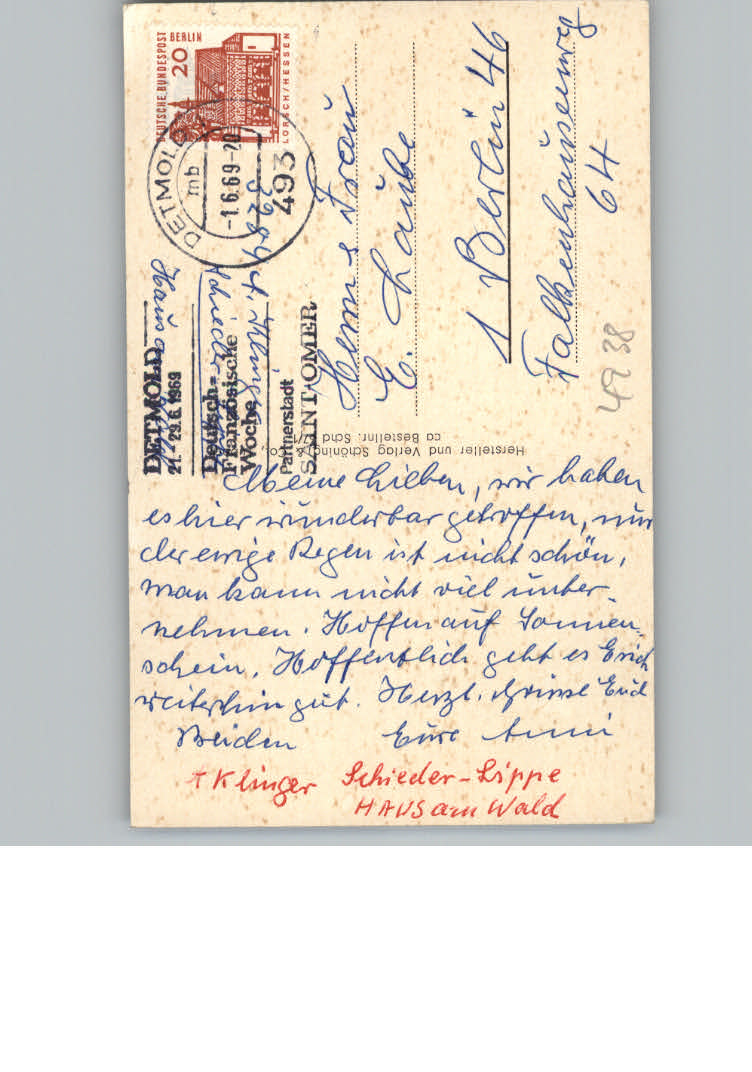 DEUTSCHE BUNDESPOST BERLIN
20
LORSCH/HESSEN
DETMOLD
mb
-1.6.69-20
493
DETMOLD
21.-29.6.1969
Deutsch=
Französische
Woche
Partnerstadt
SAINT OMER
Haus am
Schieder
Herrn & Frau
E. Laube
1 Berlin 46
Falkenhausenweg
64
4938
Hersteller und Verlag Schöning & Co.,
ca Bestellnr. Schd
Meine Lieben, wir haben
es hier wunderbar getroffen, nur
der ewige Regen ist nicht schön,
man kann nicht viel unter-
nehmen. Hoffen auf Sonnen-
schein. Hoffentlich geht es Erich
weiterhin gut. Herzl. Grüsse Euch
Beiden Eure Anni
Klinger Schieder-Lippe
HAUS am Wald